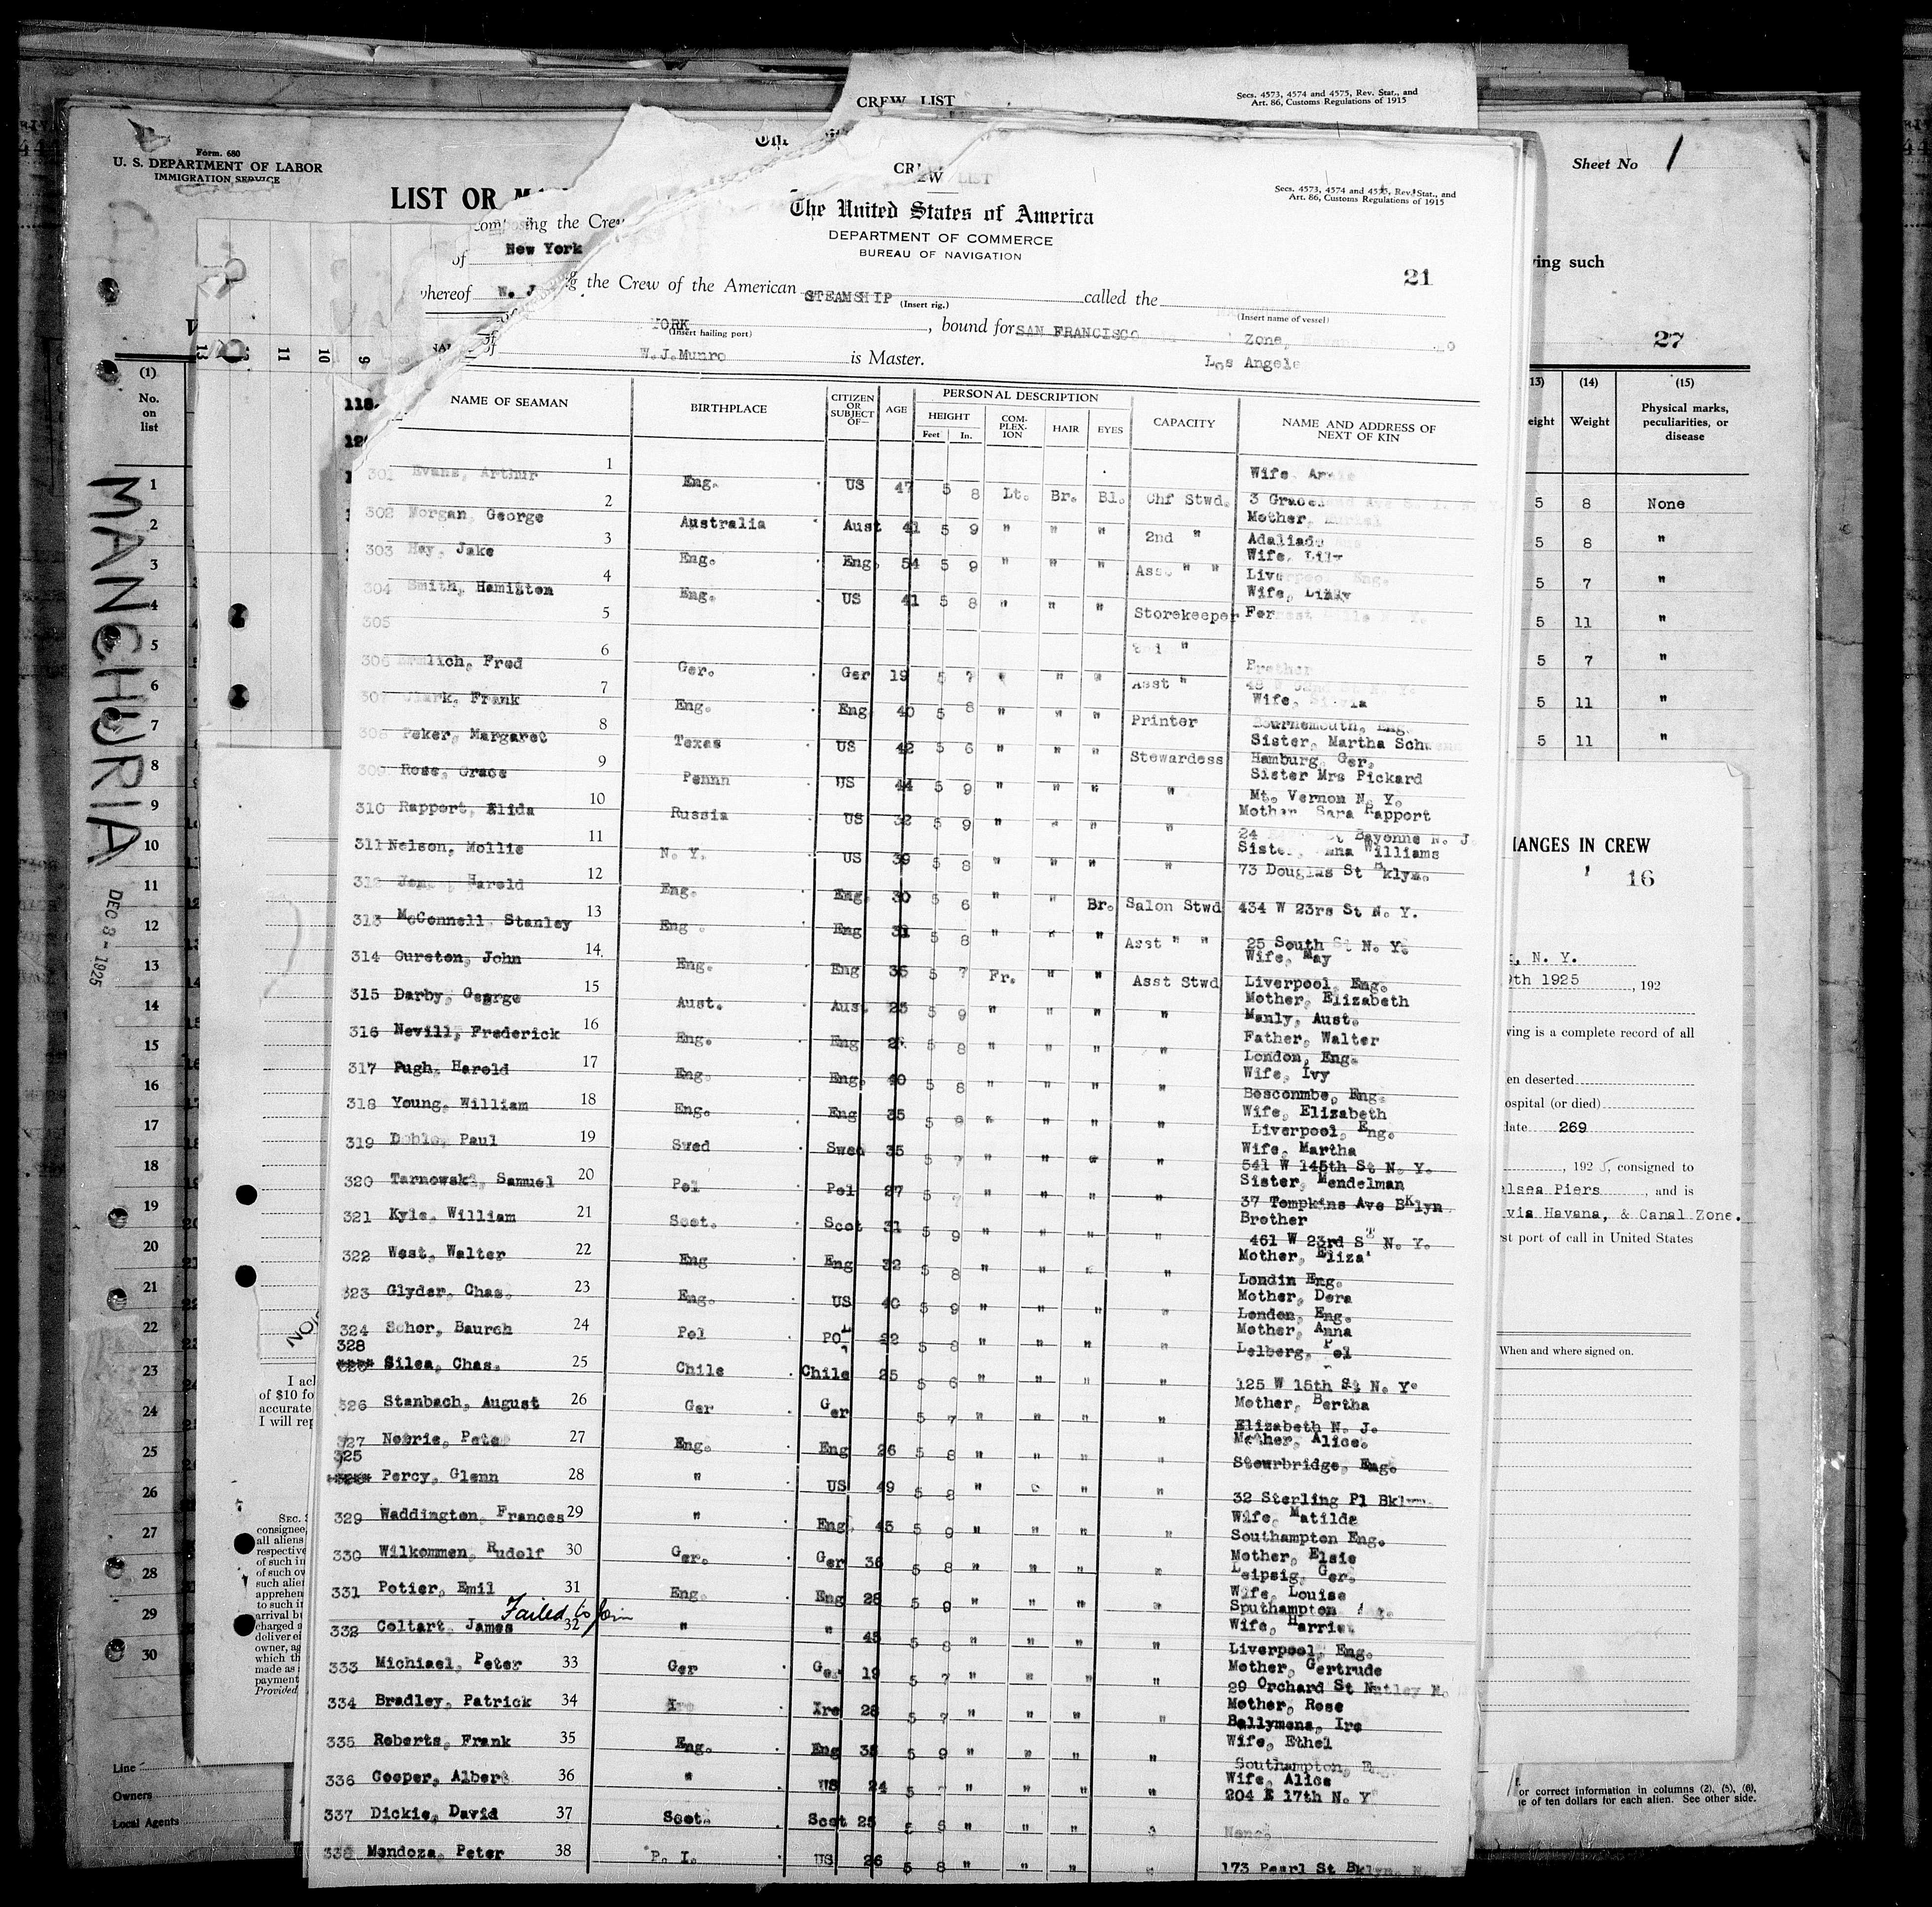 CREW LIST
Secs. 4573, 4574 and 4575, Rev. Stat., and
Art. 86, Customs Regulations of 1915
Form. 680
U. S. DEPARTMENT OF LABOR
IMMIGRATION SERVICE
LIST OR
Sheet No 1
composing the Crew
of New York
whereof W. J
CREW LIST
Secs. 4573, 4574 and 4575, Rev. Stat., and
Art. 86, Customs Regulations of 1915
The United States of America
DEPARTMENT OF COMMERCE
BUREAU OF NAVIGATION
21
the Crew of the American STEAMSHIP (Insert rig.) called the
(Insert name of vessel)
YORK (Insert hailing port), bound for SAN FRANCISCO Zone,
W.J.Munro is Master. Los Angele
NAME OF SEAMAN BIRTHPLACE CITIZEN OR SUBJECT OF— AGE PERSONAL DESCRIPTION CAPACITY NAME AND ADDRESS OF NEXT OF KIN
HEIGHT COM-PLEX-ION HAIR EYES
Feet In.
301 Evans, Arthur 1 Eng. US 47 5 8 Lt. Br. Bl. Chf Stwd. Wife
302 Morgan, George 2 Australia Aust 41 5 9 " " " 2nd " Mother,
303 Hay, Jake 3 Eng. Eng. 54 5 9 " " " Asst " " Wife, Lily
Liverpool Eng.
304 Smith, Hamilton 4 Eng. US 41 5 8 " " " Storekeeper Wife, Lilly
305 5 "
306 Fred 6 Ger. Ger 19 5 7 " " " Asst " Brother
307 Clark, Frank 7 Eng. Eng 40 5 8 " " " Printer Wife, Silvia
Bournemouth, Eng.
308 Peker, Margaret 8 Texas US 42 5 6 " " " Stewardess Sister, Martha
Hamburg, Ger.
309 Rose, Grace 9 Pennn US 44 5 9 " " " " Sister Mrs Pickard
Mt. Vernon N. Y.
310 Rapport, Elida 10 Russia US 32 5 9 " " " " Mother Sara Rapport
24 Bayonne N. J.
311 Nelson, Mollie 11 N. Y. US 39 5 8 " " " " Sister, Williams
73 Douglas St Bklyn.
312 Harold 12 Eng. Eng. 30 5 6 " " Br. Salon Stwd 434 W 23rs St N. Y.
313 McConnell, Stanley 13 Eng. Eng 31 5 8 " " " Asst " " 25 South St N. Y.
314 Gurston, John 14 Eng. Eng 35 5 7 Fr. " " Asst Stwd Wife, May
Liverpool, Eng.
315 Darby, George 15 Aust. Aust 25 5 9 " " " " Mother, Elizabeth
Manly, Aust.
316 Nevill, Frederick 16 Eng. Eng 5 8 " " " " Father, Walter
London, Eng.
317 Pugh, Harold 17 Eng. Eng. 40 5 8 " " " " Wife, Ivy
Boscombe, Eng.
318 Young, William 18 Eng. Eng 35 5 " " " " Wife, Elizabeth
Liverpool, Eng.
319 Doble, Paul 19 Swed Swed 35 5 7 " " " " Wife, Martha
541 W 145th St N. Y.
320 Tarnowski, Samuel 20 Pol Pol 27 5 7 " " " " Sister, Mendelman
37 Tompkins Ave Bklyn
321 Kyle, William 21 Scot. Scot 31 5 9 " " " " Brother
461 W 23rd St N. Y.
322 West, Walter 22 Eng Eng 32 5 8 " " " " Mother, Eliza
Londin Eng.
323 Glyder, Chas. 23 Eng. US 40 5 9 " " " " Mother, Dora
London, Eng.
324 Schor, Baurch 24 Pol POL 22 5 8 " " " " Mother, Anna
Lelberg, Pol
328 Silea, Chas. 25 Chile Chile 25 5 6 " " " " 125 W 15th St N. Y.
326 Stanbach, August 26 Ger Ger 5 7 " " " " Mother, Bertha
Elizabeth N. J.
327 Norrie, Peter 27 Eng. Eng 26 5 8 " " " Mother, Alice.
Stourbridge, Eng.
325 Percy, Glenn 28 " US 49 5 8 " " " " 32 Sterling Pl Bklyn.
329 Waddington, Frances 29 " Eng. 45 5 9 " " " " Wife, Matilda
Southampton Eng.
330 Wilkommen, Rudolf 30 Ger. Ger 36 5 8 " " " " Mother, Elsie
Leipsig, Ger.
331 Potier, Emil 31 Eng. Eng 28 5 9 " " " " Wife, Louise
Southampton
Failed to Join
332 Coltart, James 32 " " 45 5 8 " " " " Wife, Harriet
Liverpool, Eng.
333 Michiael, Peter 33 Ger Ger 19 5 7 " " " " Mother, Gertrude
29 Orchard St Nutley N.
334 Bradley, Patrick 34 Ire Ire 28 5 7 " " " " Mother, Rose
Ballymena, Ire
335 Roberts, Frank 35 Eng. Eng 35 5 9 " " " " Wife, Ethel
Southampton, E
336 Cooper, Albert 36 " US 24 5 7 " " " " Wife, Alice
204 E 17th N. Y
337 Dickie, David 37 Scot. Scot 25 5 " " " None
338 Mendoza, Peter 38 P. I. US 26 5 8 " " " " 173 Pearl St Bklyn. N. Y
MANCHURIA
DEC 8 - 1925
(1)
No.
on
list
1
2
3
4
5
6
7
8
9
10
11
12
13
14
15
16
17
18
19
20
21
22
23
24
25
26
27
28
29
30
Line
Owners
Local Agents
13 11 10 9
118
I ac
of $10 fo
accurate
I will rep
SEC.
consignee,
all aliens
respective
of such in
of such ow
such alien
apprehen
to such in
arrival b
charged a
deliver
owner, ag
which th
made as
payment
Provided
ving such
27
13) (14) (15)
eight Weight Physical marks, peculiarities, or disease
5 8 None
5 8 "
5 7 "
5 11 "
5 7 "
5 11 "
5 11 "
HANGES IN CREW
16
, N. Y.
9th 1925, 192
wing is a complete record of all
en deserted
ospital (or died)
date 269
, 1925, consigned to
lsea Piers, and is
via Havana, & Canal Zone.
st port of call in United States
When and where signed on.
or correct information in columns (2), (5), (6),
e of ten dollars for each alien. See other side.